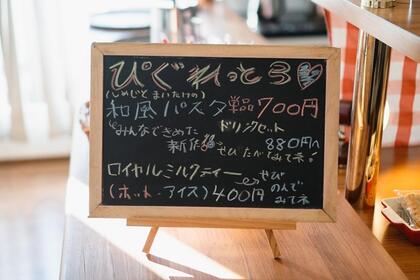 ぴぐれっと3♡
(しめじとまいたけの)
和風パスタ 単品700円
"みんなできめた ドリンクセット
新作" 880円へ
ぜひたべてみて ネ。
ロイヤルミルクティー
(ホット・アイス) 400円 ぜひ
のんで
みてネ